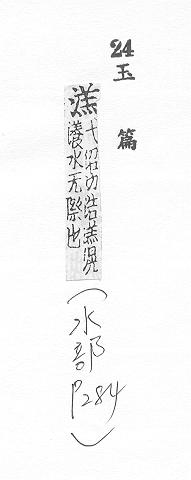 24
玉篇
溔
弋沼切浩溔滉
瀁水无際也
(水部P284)